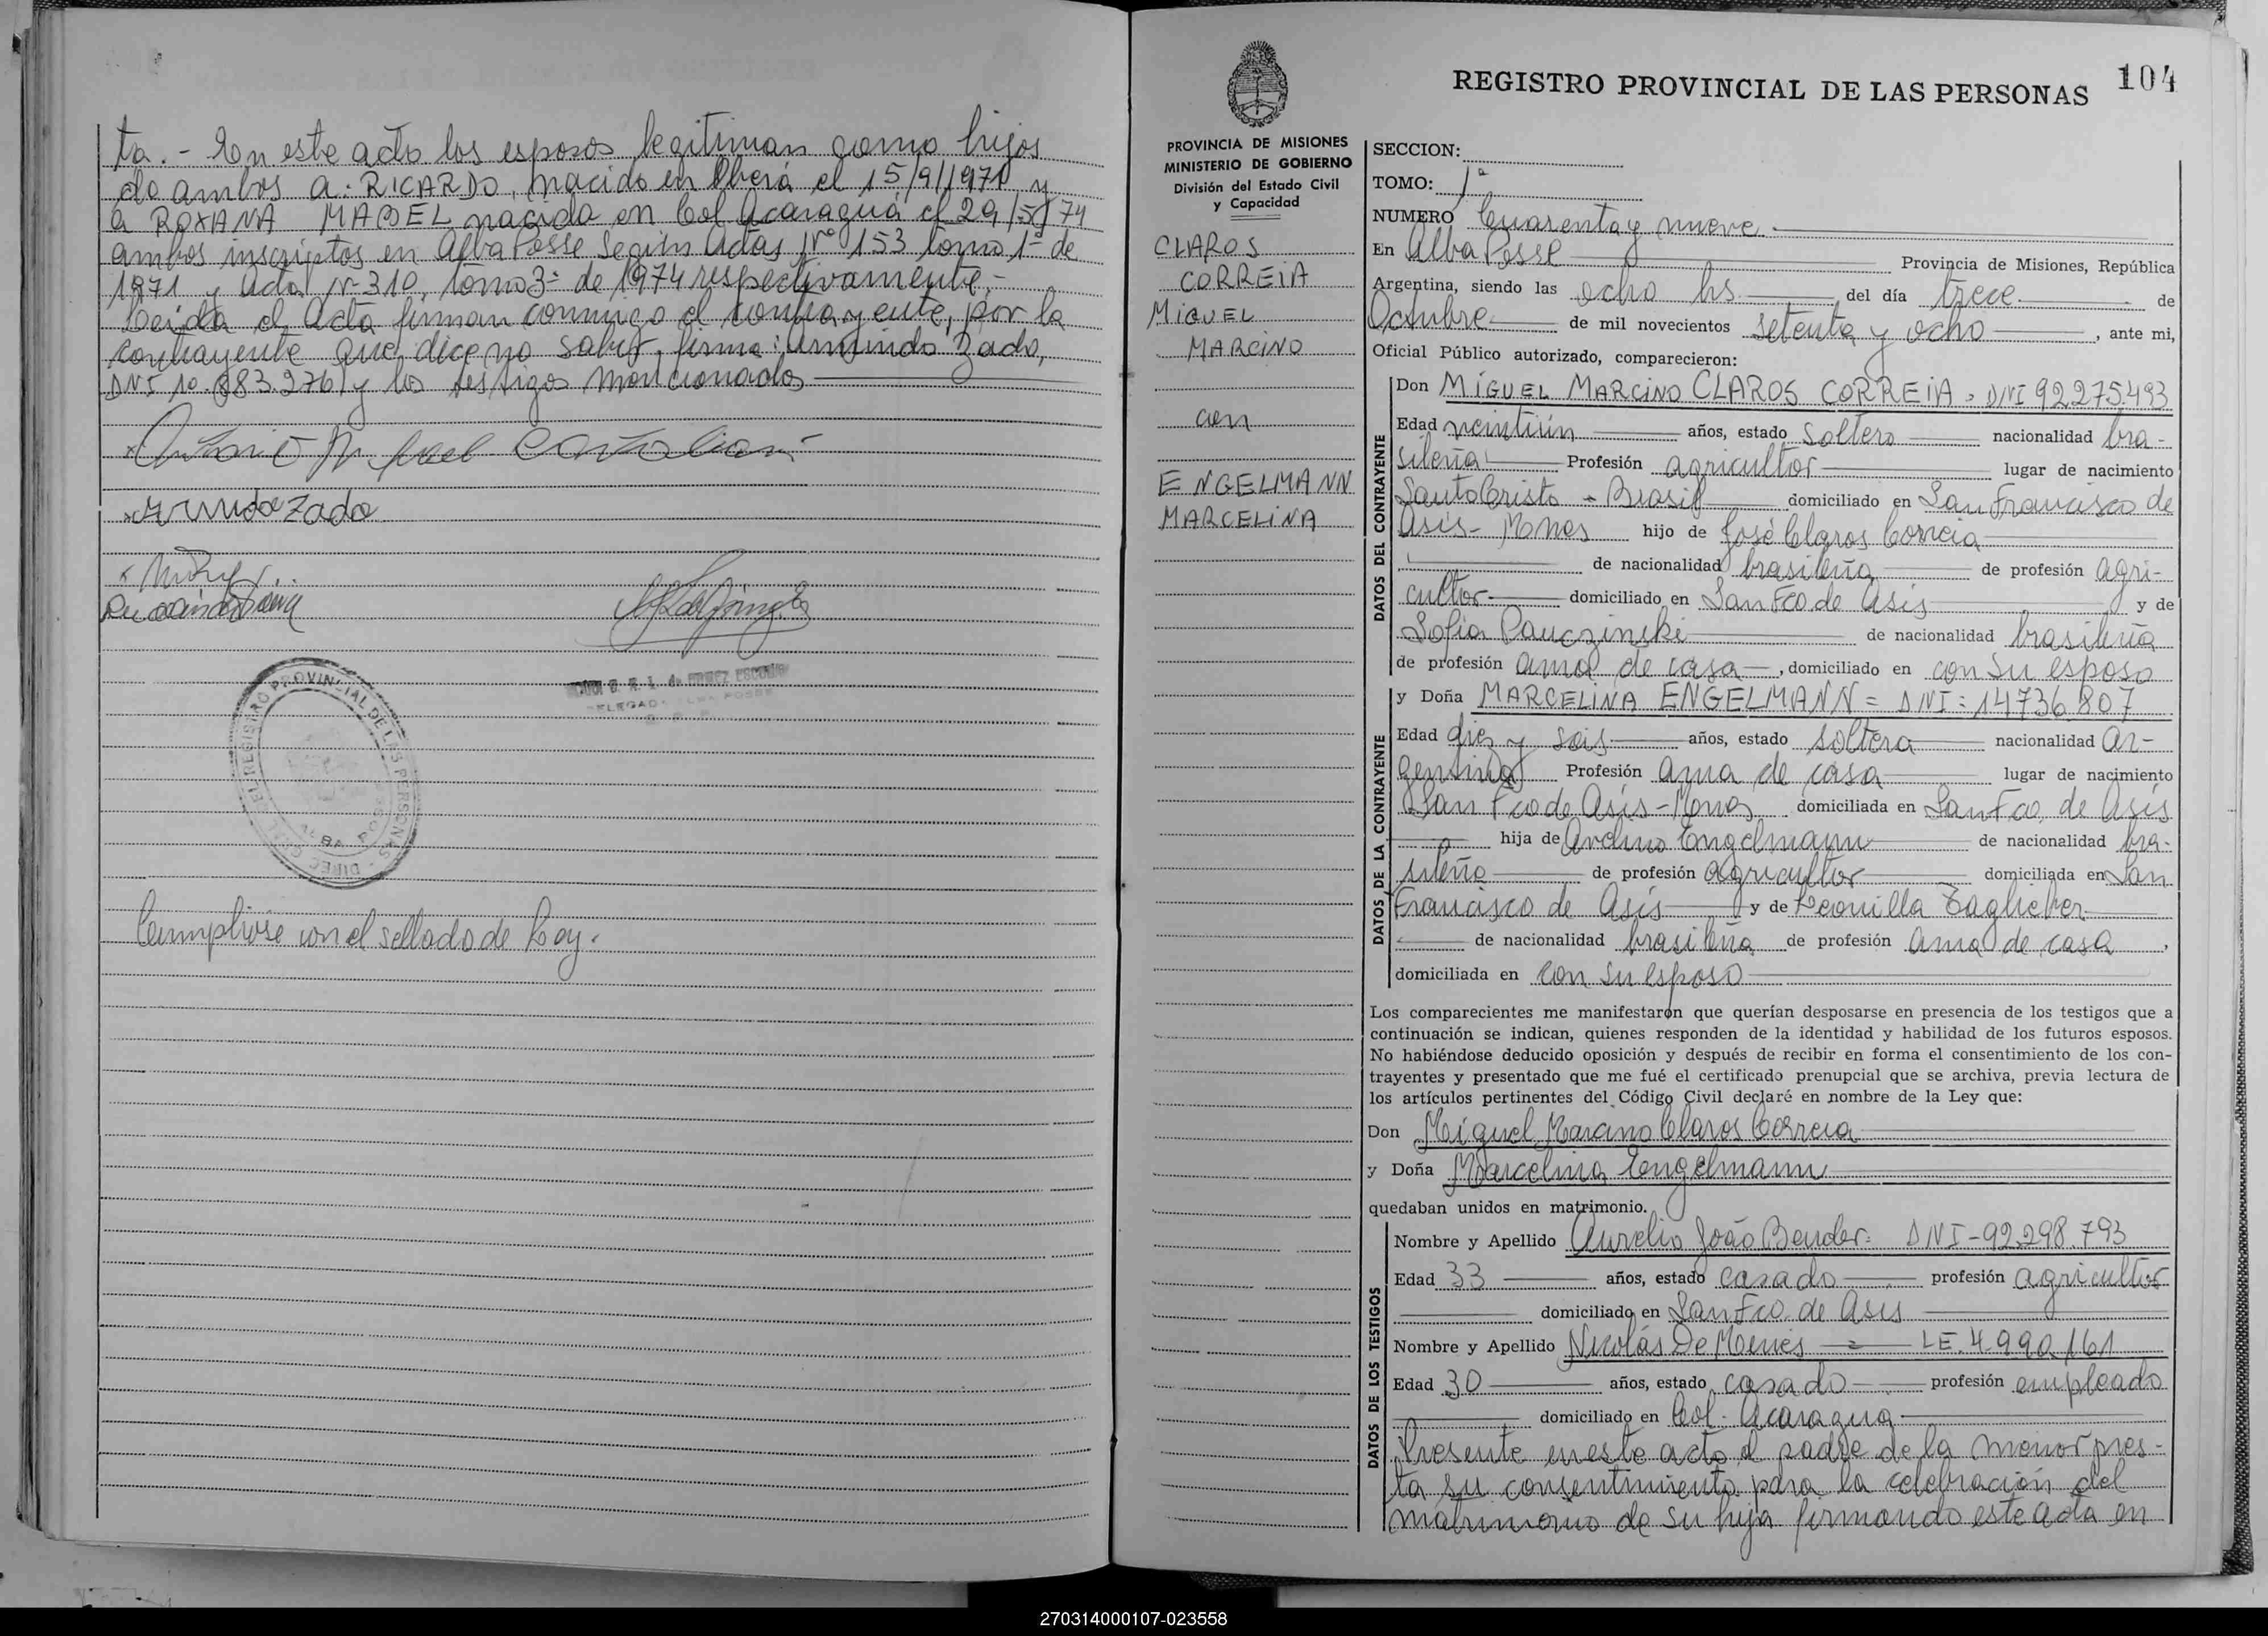 ta. - En este acto los esposos legitiman como hijos
de ambos a: RICARDO, nacido en Oberá el 15/9/1970 y
a ROXANA MABEL nacida en Col Acaraguá el 29/5/74
ambos inscriptos en Alba Posse Según Actas Nº 153 tomo 1º de
1971 y Acta Nº 310, tomo 3º de 1974 respectivamente.-
Leida el Acta firman conmigo el contrayente, por la
contrayente que dice no saber firma: Armindo Zado,
DNI 10.883.276 y los testigos mencionados
Armindo Zado
REGISTRO PROVINCIAL DE LAS PERSONAS
Cumplióse con el sellado de Ley.
104
REGISTRO PROVINCIAL DE LAS PERSONAS
PROVINCIA DE MISIONES
MINISTERIO DE GOBIERNO
División del Estado Civil
y Capacidad
CLAROS
CORREIA
MIGUEL
MARCINO
con
ENGELMANN
MARCELINA
SECCION:
TOMO: 1º
NUMERO Cuarenta y nueve
En Alba Posse Provincia de Misiones, República
Argentina, siendo las ocho hs. del día trece de
Octubre de mil novecientos setenta y ocho, ante mi,
Oficial Público autorizado, comparecieron:
DATOS DEL CONTRAYENTE
Don MIGUEL MARCINO CLAROS CORREIA. DNI 92.275.493
Edad veintiún años, estado soltero nacionalidad bra-
sileña Profesión agricultor lugar de nacimiento
Santo Cristo - Brasil domiciliado en San Francisco de
Asis - Mnes hijo de José Claros Correia
de nacionalidad brasileña de profesión agri-
cultor domiciliado en San Fco de Asis y de
Sofia Pauczinski de nacionalidad brasileña
de profesión ama de casa, domiciliado en con su esposo
DATOS DE LA CONTRAYENTE
y Doña MARCELINA ENGELMANN = DNI: 14736.807
Edad diez y seis años, estado soltera nacionalidad ar-
gentina Profesión ama de casa lugar de nacimiento
San Fco de Asis - Mnes domiciliada en San Fco. de Asis
hija de Ardino Engelmann de nacionalidad bra-
sileño de profesión agricultor domiciliada en San
Francisco de Asis y de
de nacionalidad brasileña de profesión ama de casa,
domiciliada en con su esposo
Los comparecientes me manifestaron que querían desposarse en presencia de los testigos que a
continuación se indican, quienes responden de la identidad y habilidad de los futuros esposos.
No habiéndose deducido oposición y después de recibir en forma el consentimiento de los con-
trayentes y presentado que me fué el certificado prenupcial que se archiva, previa lectura de
los artículos pertinentes del Código Civil declaré en nombre de la Ley que:
Don Miguel Marcino Claros Correia
y Doña Marcelina Engelmann
quedaban unidos en matrimonio.
DATOS DE LOS TESTIGOS
Nombre y Apellido Aurelio João Bender = DNI - 92.298.793
Edad 33 años, estado casado profesión agricultor
domiciliado en San Fco. de Asis
Nombre y Apellido Nicolás De Menes = LE. 4.990.161
Edad 30 años, estado casado profesión empleado
domiciliado en Col. Acaragua
Presente en este acto el padre de la menor pres-
ta su consentimiento para la celebración del
matrimonio de su hija firmando este acta en
270314000107-023558